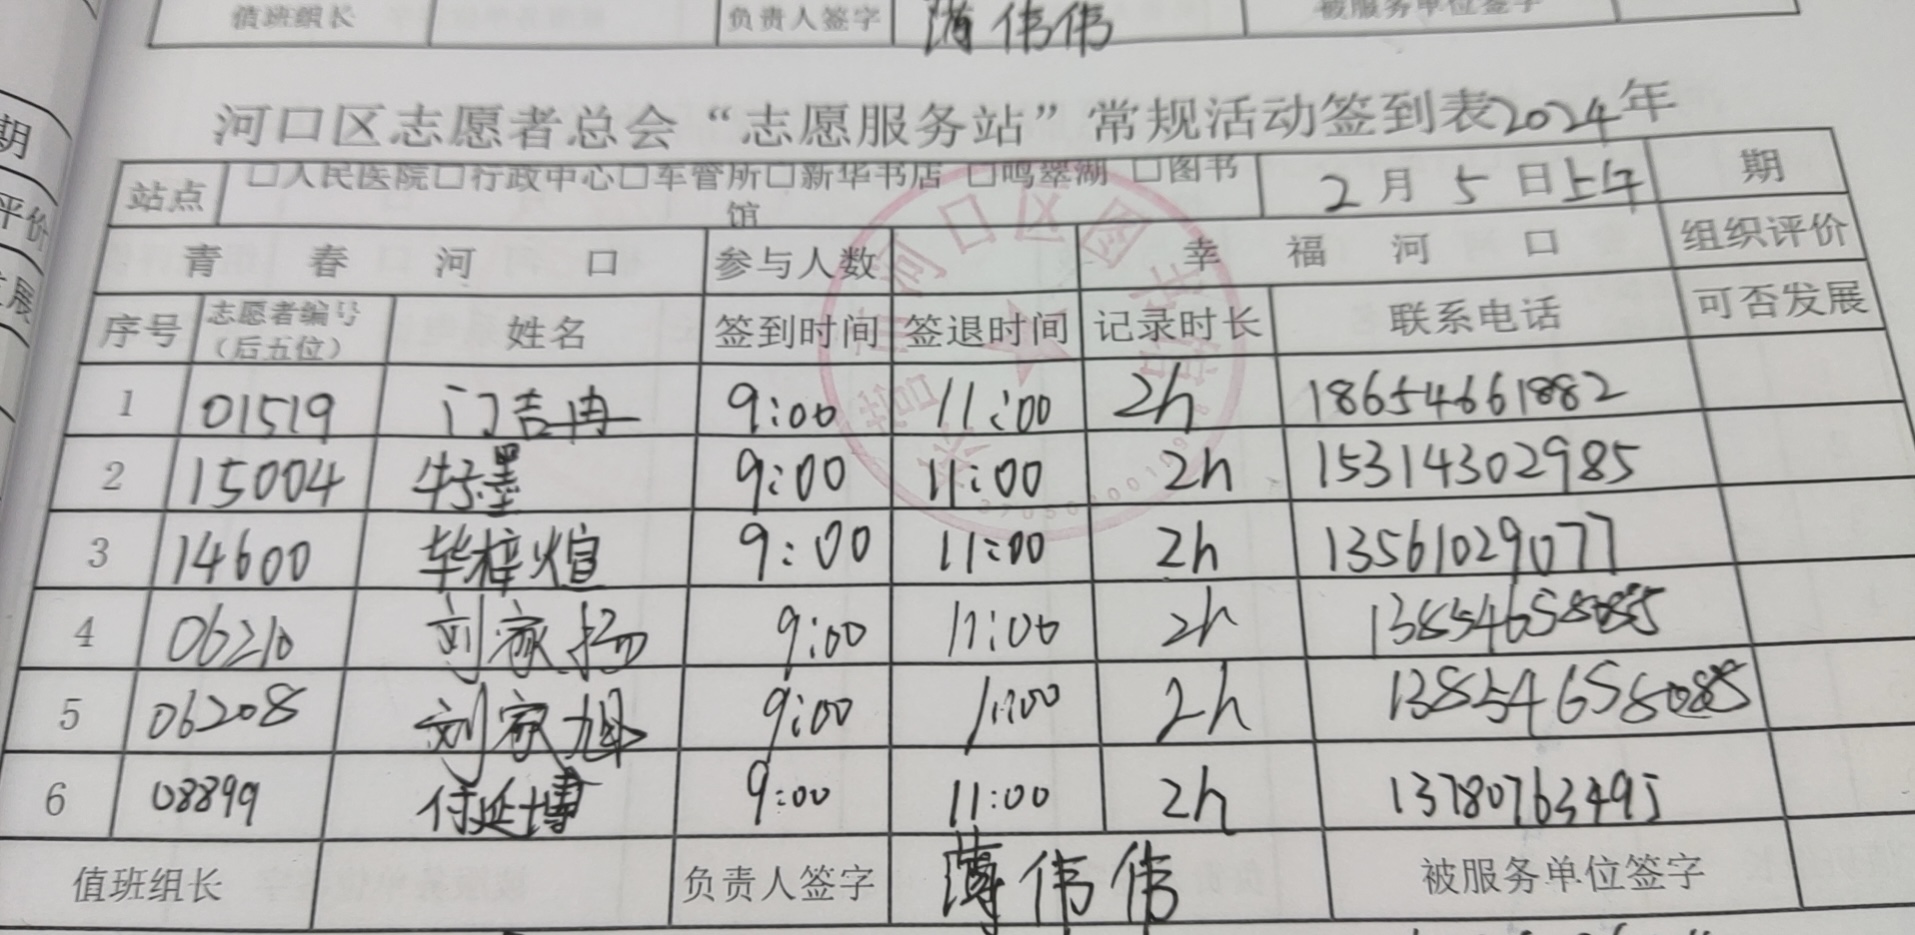 值班组长 负责人签字 薄伟伟 被服务单位签字
河口区志愿者总会“志愿服务站”常规活动签到表2024年
站点 □人民医院□行政中心□车管所□新华书店 □鸣翠湖 □图书馆 2月5日上午 期
青春河口 参与人数 幸福河口 组织评价
序号 志愿者编号（后五位） 姓名 签到时间 签退时间 记录时长 联系电话 可否发展
1 01519 门吉冉 9:00 11:00 2h 18654661882
2 15004 牛子墨 9:00 11:00 2h 15314302985
3 14600 毕梓煊 9:00 11:00 2h 13561029077
4 06210 刘家扬 9:00 11:00 2h
5 06208 刘家旭 9:00 11:00 2h 13854658085
6 08899 付延博 9:00 11:00 2h 13780763495
值班组长 负责人签字 薄伟伟 被服务单位签字
期
评价
展